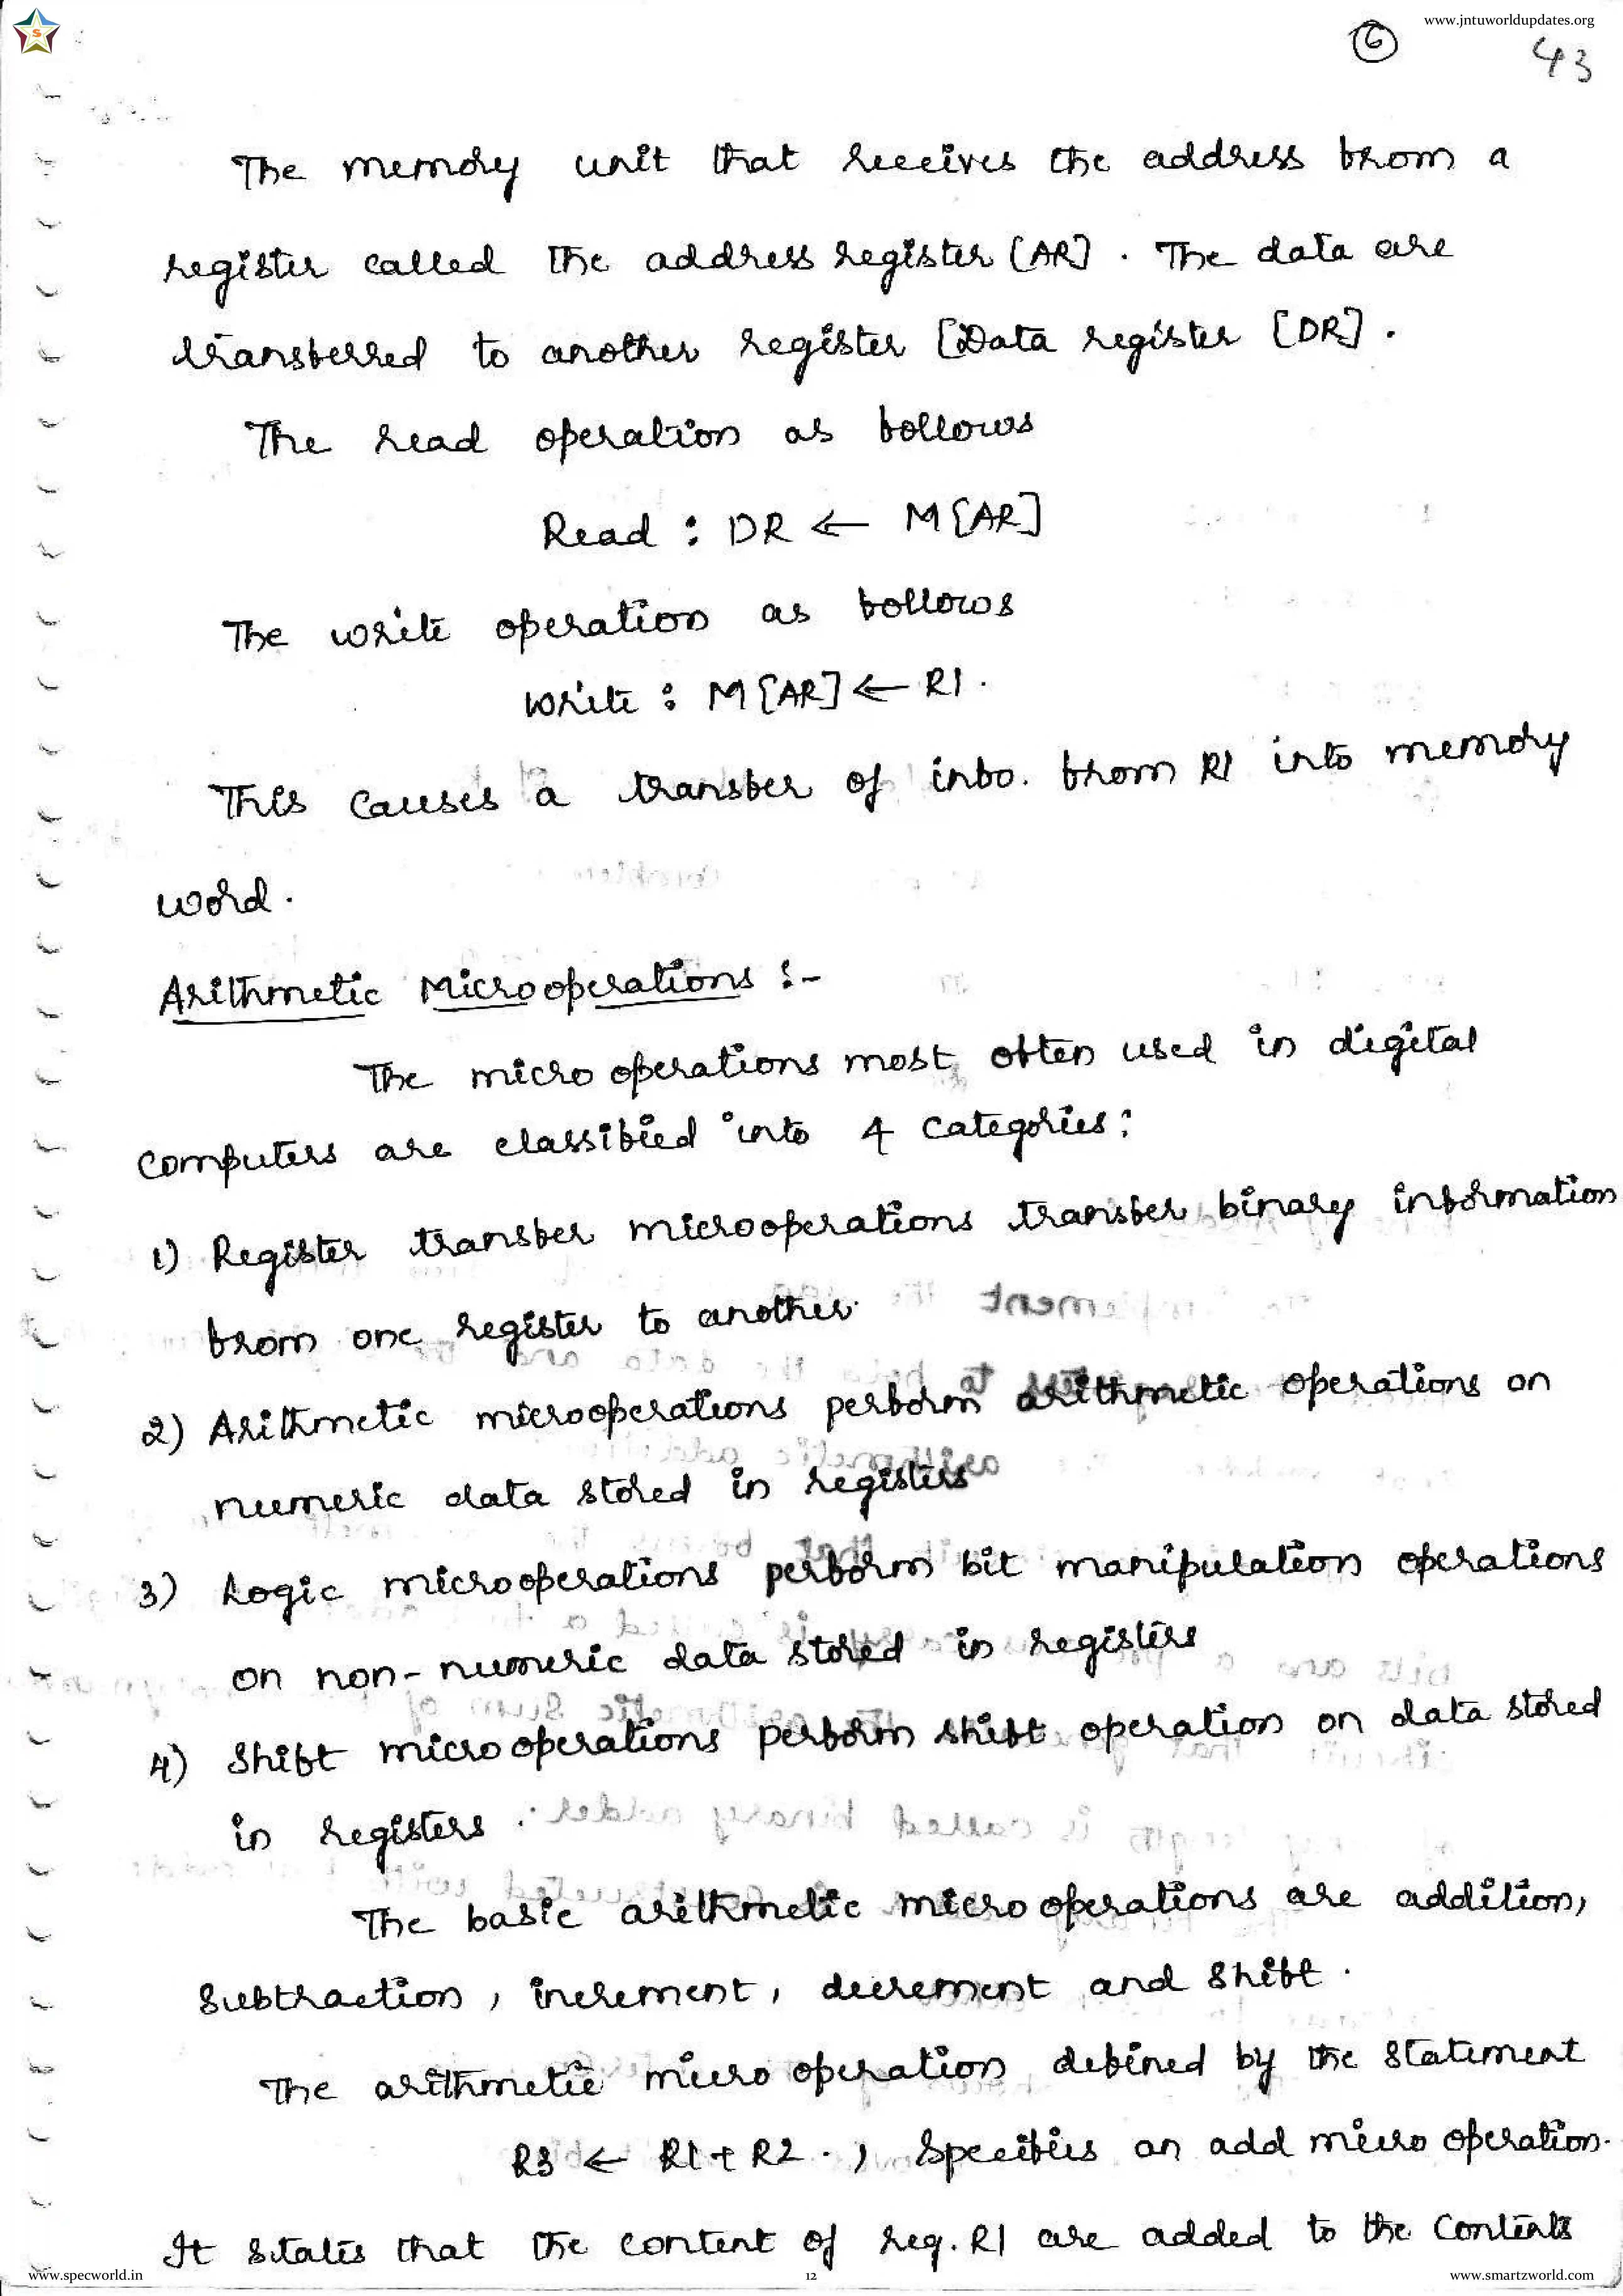 www.jntuworldupdates.org
S
6
43
The memory unit that receives the address from a
register called the address register [AR]. The data are
transferred to another register [Data register [DR].
The read operation as follows
Read : DR ← M[AR]
The write operation as follows
Write : M[AR] ← R1.
This causes a transfer of info. from R1 into memory
word.
Arithmetic Microoperations :-
The micro operations most often used in digital
computers are classified into 4 categories:
1) Register transfer microoperations transfer binary information
from one register to another.
2) Arithmetic microoperations perform arithmetic operations on
numeric data stored in registers
3) Logic microoperations perform bit manipulation operations
on non-numeric data stored in registers
4) Shift microoperations perform shift operation on data stored
in registers.
The basic arithmetic micro operations are addition,
subtraction, increment, decrement and shift.
The arithmetic micro operation defined by the statement
R3 ← R1 + R2 . , specifies an add micro operation.
It states that the content of reg. R1 are added to the contents
www.specworld.in
12
www.smartzworld.com